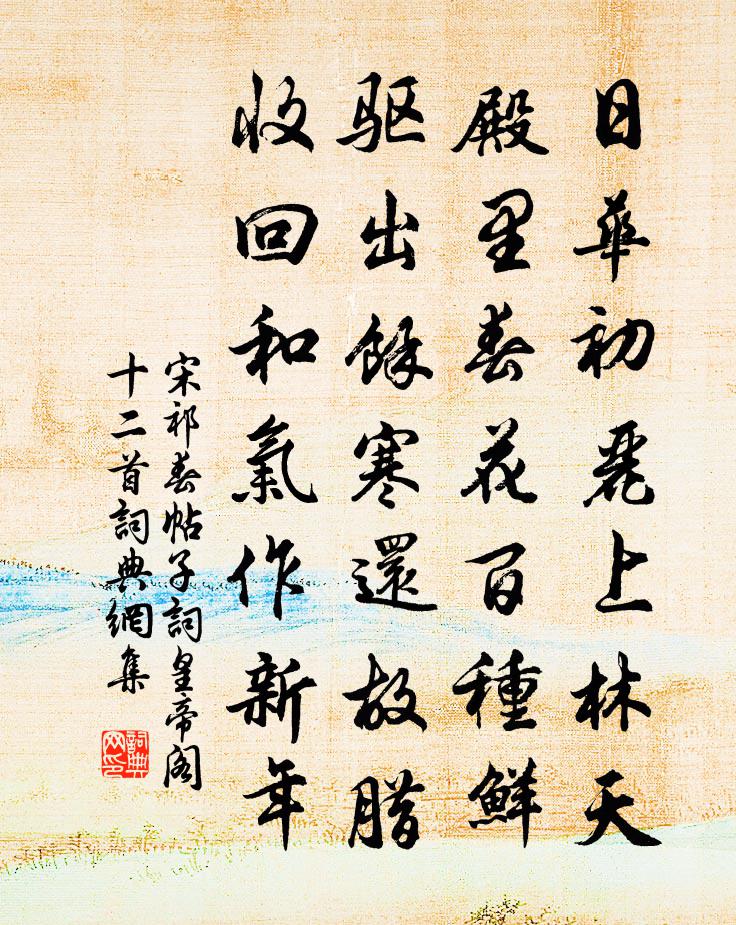 日華初麗上林天
殿里春花百種鮮
驅出餘寒還故腊
收回和氣作新年
宋祁春帖子詞皇帝閣
十二首詞典網集
詞典
网印